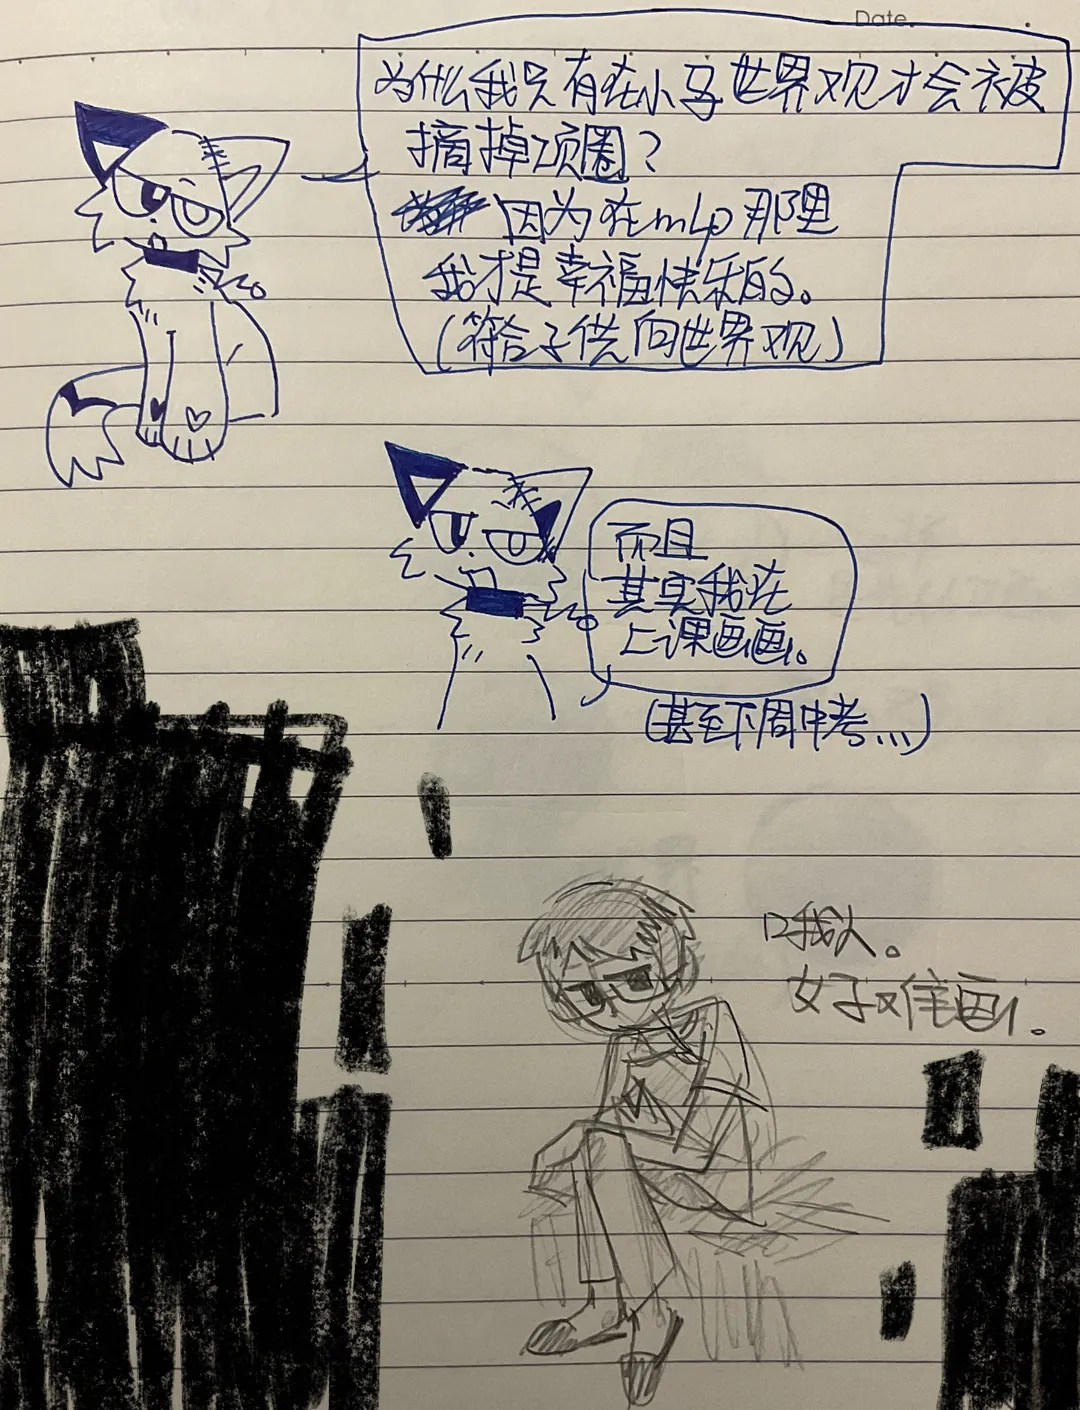 Date.
为什么我只有在小马世界观才会被
摘掉项圈？
因为在mlp那里
我才是幸福快乐的。
(符合子供向世界观)
而且
其实我在
上课画画。
(甚至下周中考...)
我人。
好难画。